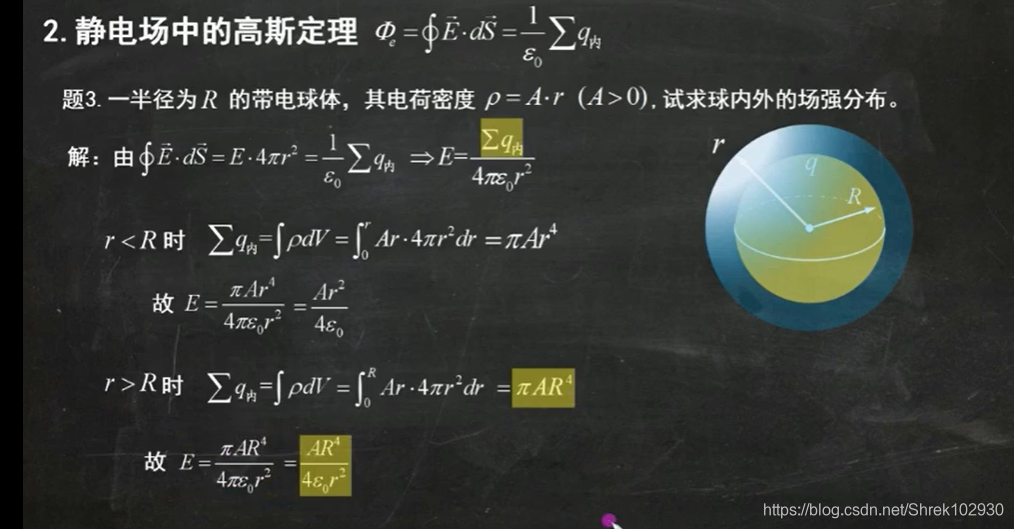 2.静电场中的高斯定理 Φₑ=∮E⃗·dS⃗=1/ε₀ ∑q内
题3.一半径为R 的带电球体，其电荷密度 ρ=A·r (A>0),试求球内外的场强分布。
解：由∮E⃗·dS⃗=E·4πr²=1/ε₀ ∑q内 ⇒E=∑q内/4πε₀r²
r
q
R
r<R时 ∑q内=∫ρdV=∫₀ʳ Ar·4πr²dr=πAr⁴
故 E=πAr⁴/4πε₀r² =Ar²/4ε₀
r>R时 ∑q内=∫ρdV=∫₀ᴿ Ar·4πr²dr =πAR⁴
故 E=πAR⁴/4πε₀r² =AR⁴/4ε₀r²
https://blog.csdn.net/Shrek102930